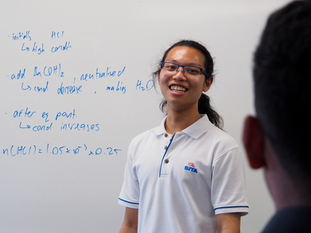 · initially HCl
↳ high cond.
· add Ba(OH)₂, neutralised
↳ cond decrease, making H₂O
· after eq point
↳ cond increases
n(HCl) = (1.05×10⁻³) × 0.25
SITA